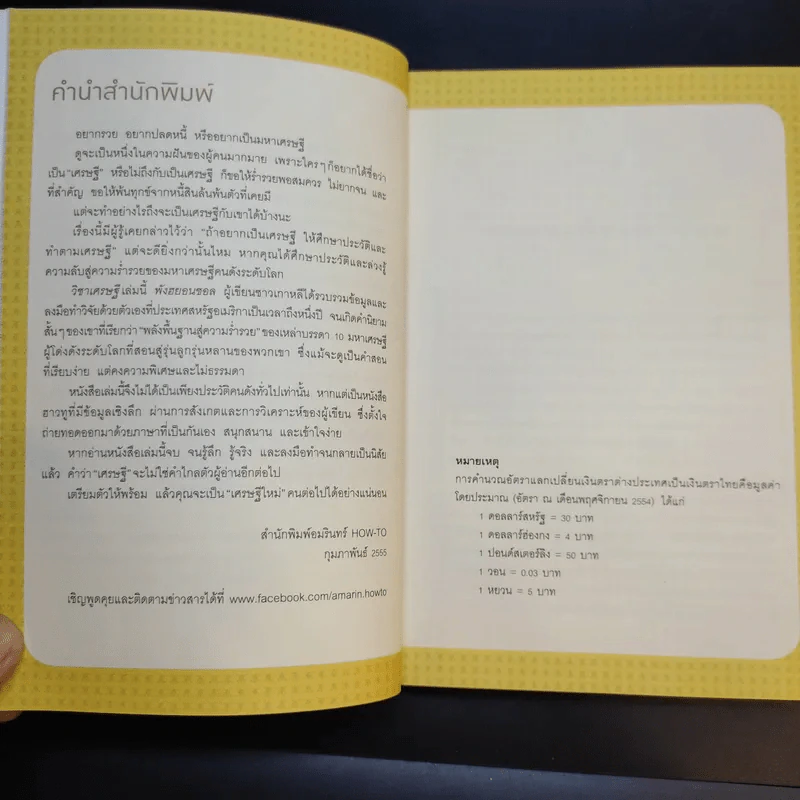 คำนำสำนักพิมพ์
อยากรวย อยากปลดหนี้ หรืออยากเป็นมหาเศรษฐี
ดูจะเป็นหนึ่งในความฝันของผู้คนมากมาย เพราะใครๆ ก็อยากได้ชื่อว่า
เป็น "เศรษฐี" หรือไม่ถึงกับเป็นเศรษฐี ก็ขอให้ร่ำรวยพอสมควร ไม่ยากจน และ
ที่สำคัญ ขอให้พ้นทุกข์จากหนี้สินล้นพ้นตัวที่เคยมี
แต่จะทำอย่างไรถึงจะเป็นเศรษฐีกับเขาได้บ้างนะ
เรื่องนี้มีผู้รู้เคยกล่าวไว้ว่า "ถ้าอยากเป็นเศรษฐี ให้ศึกษาประวัติและ
ทำตามเศรษฐี" แต่จะดียิ่งกว่านั้นไหม หากคุณได้ศึกษาประวัติและล่วงรู้
ความลับสู่ความร่ำรวยของมหาเศรษฐีคนดังระดับโลก
วิชาเศรษฐีเล่มนี้ พังฮยอนชอล ผู้เขียนชาวเกาหลีได้รวบรวมข้อมูลและ
ลงมือทำวิจัยด้วยตัวเองที่ประเทศสหรัฐอเมริกาเป็นเวลาถึงหนึ่งปี จนเกิดคำนิยาม
สั้นๆ ของเขาที่เรียกว่า "พลังพื้นฐานสู่ความร่ำรวย" ของเหล่าบรรดา 10 มหาเศรษฐี
ผู้โด่งดังระดับโลกที่สอนสู่รุ่นลูกรุ่นหลานของพวกเขา ซึ่งแม้จะดูเป็นคำสอน
ที่เรียบง่าย แต่คงความพิเศษและไม่ธรรมดา
หนังสือเล่มนี้จึงไม่ได้เป็นเพียงประวัติคนดังทั่วไปเท่านั้น หากแต่เป็นหนังสือ
ฮาวทูที่มีข้อมูลเชิงลึก ผ่านการสังเกตและการวิเคราะห์ของผู้เขียน ซึ่งตั้งใจ
ถ่ายทอดออกมาด้วยภาษาที่เป็นกันเอง สนุกสนาน และเข้าใจง่าย
หากอ่านหนังสือเล่มนี้จบ จนรู้ลึก รู้จริง และลงมือทำจนกลายเป็นนิสัย
แล้ว คำว่า "เศรษฐี" จะไม่ใช่คำไกลตัวผู้อ่านอีกต่อไป
เตรียมตัวให้พร้อม แล้วคุณจะเป็น "เศรษฐีใหม่" คนต่อไปได้อย่างแน่นอน
สำนักพิมพ์อมรินทร์ HOW-TO
กุมภาพันธ์ 2555
เชิญพูดคุยและติดตามข่าวสารได้ที่ www.facebook.com/amarin.howto
หมายเหตุ
การคำนวณอัตราแลกเปลี่ยนเงินตราต่างประเทศเป็นเงินตราไทยคือมูลค่า
โดยประมาณ (อัตรา ณ เดือนพฤศจิกายน 2554) ได้แก่
1 ดอลลาร์สหรัฐ = 30 บาท
1 ดอลลาร์ฮ่องกง = 4 บาท
1 ปอนด์สเตอร์ลิง = 50 บาท
1 วอน = 0.03 บาท
1 หยวน = 5 บาท